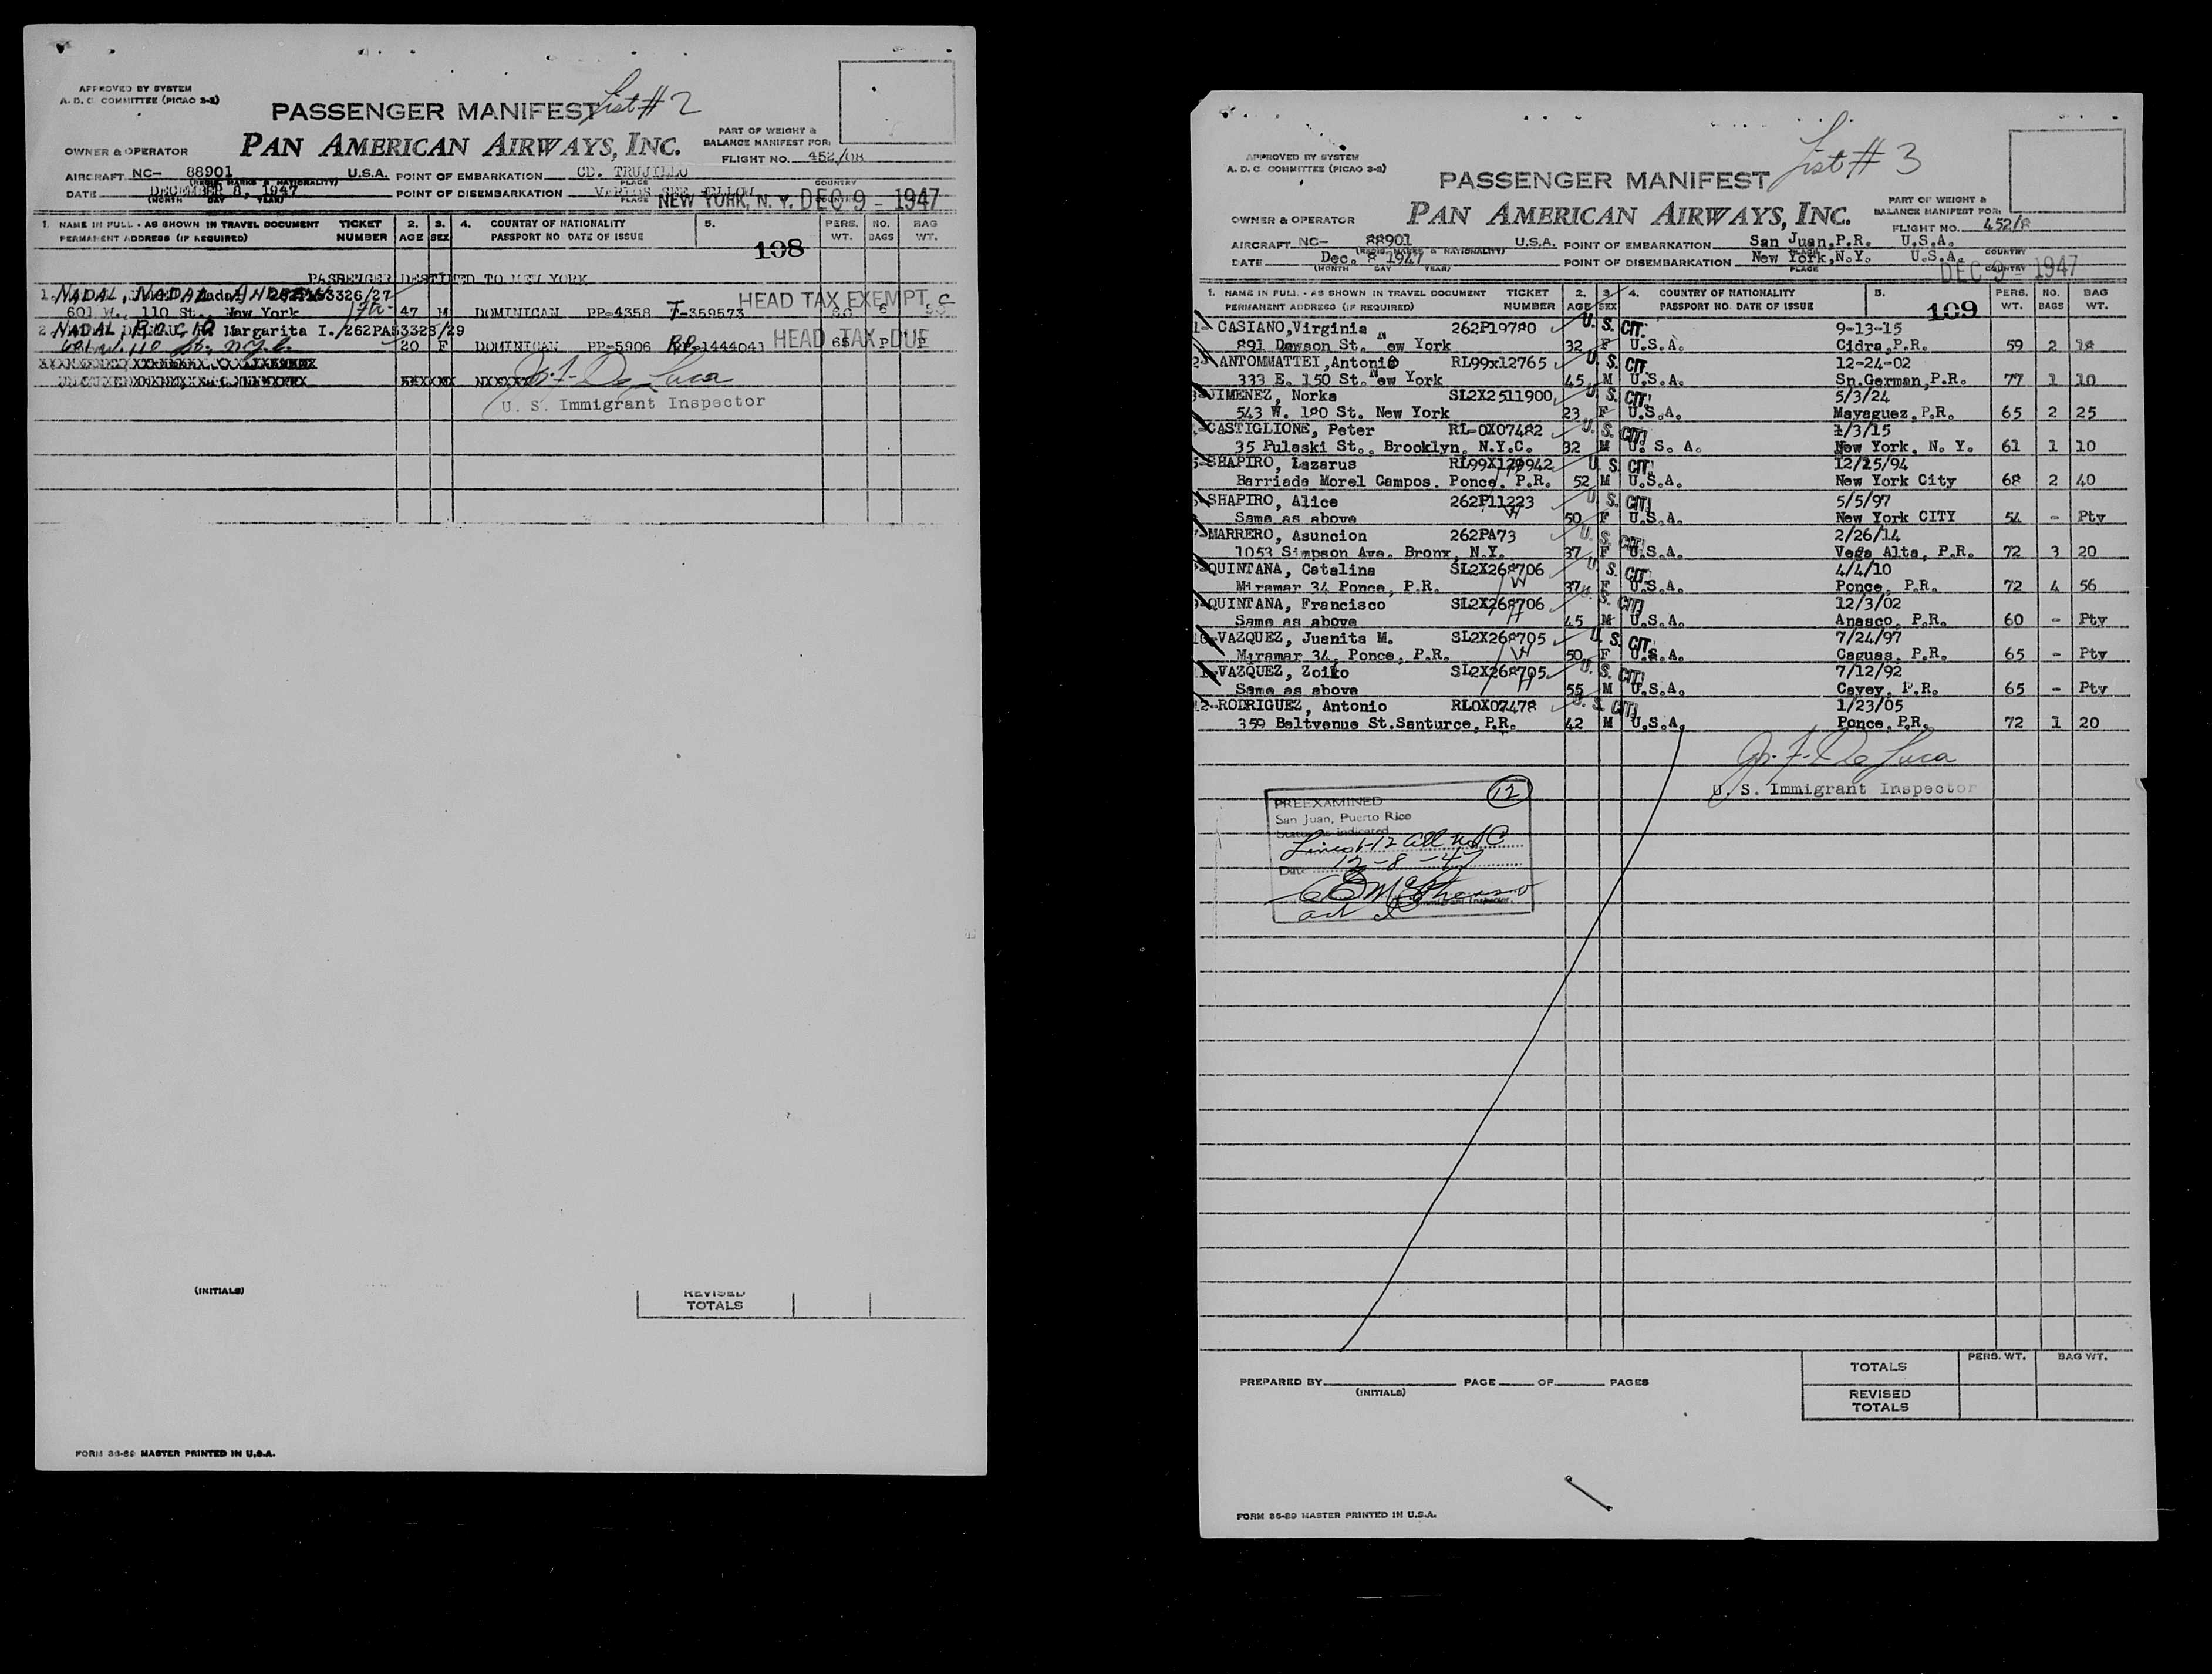 APPROVED BY SYSTEM
A. D. C. COMMITTEE (PICAO 2-2)
PASSENGER MANIFEST List # 2
PAN AMERICAN AIRWAYS, INC.
PART OF WEIGHT &
BALANCE MANIFEST FOR:
OWNER & OPERATOR
FLIGHT NO. 452/08
AIRCRAFT NC- 88901 U.S.A. POINT OF EMBARKATION CD. TRUJILLO
(REGIS. MARKS & NATIONALITY) PLACE COUNTRY
DATE DECEMBER 8, 1947 POINT OF DISEMBARKATION
(MONTH DAY YEAR) PLACE NEW YORK, N. Y. DEC 9 - 1947
1. NAME IN FULL - AS SHOWN IN TRAVEL DOCUMENT TICKET 2. 3. 4. COUNTRY OF NATIONALITY 5. PERS. NO. BAG
PERMANENT ADDRESS (IF REQUIRED) NUMBER AGE SEX PASSPORT NO DATE OF ISSUE WT. BAGS WT.
108
PASSENGER DESTINED TO NEW YORK
1. NADAL, NADAL 3326/27 HEAD TAX EXEMPT C
601 W., 110 St., New York 47 M DOMINICAN PP-4358 T-359573 6
2. NADAL Margarita I./262PA53328/29 HEAD TAX DUE
601 W. 110 St. N.Y.C. 20 F DOMINICAN PP-5906 RP-1444041 65 P
Jos. F. De Luca
U. S. Immigrant Inspector
(INITIALS)
REVISED
TOTALS
FORM 36-89 MASTER PRINTED IN U.S.A.
List # 3
APPROVED BY SYSTEM
A. D. C. COMMITTEE (PICAO 2-2)
PASSENGER MANIFEST
PAN AMERICAN AIRWAYS, INC.
PART OF WEIGHT &
BALANCE MANIFEST FOR:
OWNER & OPERATOR
FLIGHT NO. 452/8
AIRCRAFT NC- 88901 U.S.A. POINT OF EMBARKATION San Juan,P.R. U.S.A.
(REGIS. MARKS & NATIONALITY) PLACE COUNTRY
DATE Dec. 8 1947 POINT OF DISEMBARKATION New York,N.Y. U.S.A.
(MONTH DAY YEAR) PLACE COUNTRY
DEC 9 - 1947
1. NAME IN FULL - AS SHOWN IN TRAVEL DOCUMENT TICKET 2. 3. 4. COUNTRY OF NATIONALITY 5. PERS. NO. BAG
PERMANENT ADDRESS (IF REQUIRED) NUMBER AGE SEX PASSPORT NO. DATE OF ISSUE WT. BAGS WT.
109
1- CASIANO,Virginia 262P19780 U. S. CIT. 9-13-15
891 Dawson St. New York 32 F U.S.A. Cidra,P.R. 59 2 18
2- ANTOMMATTEI,Antonio RL99x12765 U. S. CIT. 12-24-02
333 E. 150 St. New York 45 M U.S.A. Sn.German,P.R. 77 1 10
3-JIMENEZ, Norka SL2X2511900 U. S. CIT. 5/3/24
543 W. 180 St. New York 23 F U.S.A. Mayaguez,P.R. 65 2 25
CASTIGLIONE, Peter RL-0X07482 U. S. CIT. 1/3/15
35 Pulaski St., Brooklyn, N.Y.C. 32 M U. S. A. New York, N. Y. 61 1 10
5-SHAPIRO, Lazarus RL99X129942 U. S. CIT. 12/25/94
Barriada Morel Campos. Ponce, P.R. 52 M U.S.A. New York City 68 2 40
SHAPIRO, Alice 262P11223 U. S. CIT. 5/5/97
Same as above W 50 F U.S.A. New York CITY 54 - Pty
MARRERO, Asuncion 262PA73 U. S. CIT. 2/26/14
1053 Simpson Ave. Bronx, N.Y. 37 F U.S.A. Vega Alta, P.R. 72 3 20
QUINTANA, Catalina SL2X268706 U. S. CIT. 4/4/10
Miramar 34 Ponce, P.R. W 37 F U.S.A. Ponce, P.R. 72 4 56
QUINTANA, Francisco SL2X268706 U. S. CIT. 12/3/02
Same as above H 45 M U.S.A. Anasco, P.R. 60 - Pty
10-VAZQUEZ, Juanita M. SL2X268705 U. S. CIT. 7/24/97
Miramar 34, Ponce, P.R. W 50 F U.S.A. Caguas, P.R. 65 - Pty
VAZQUEZ, Zoilo SL2X268705 U. S. CIT. 7/12/92
Same as above H 55 M U.S.A. Cayey, P.R. 65 - Pty
12-RODRIGUEZ, Antonio RL0X07478 U. S. CIT. 1/23/05
359 Beltvenue St.Santurce,P.R. 42 M U.S.A. Ponce, P.R. 72 1 20
Jos. F. De Luca
U. S. Immigrant Inspector
PREEXAMINED 12
San Juan, Puerto Rico
Status as indicated
Lines 1-12 all USC
Date 12-8-47
Immigrant Inspector.
TOTALS PERS. WT. BAG WT.
PREPARED BY PAGE OF PAGES
(INITIALS)
REVISED
TOTALS
FORM 36-89 MASTER PRINTED IN U.S.A.